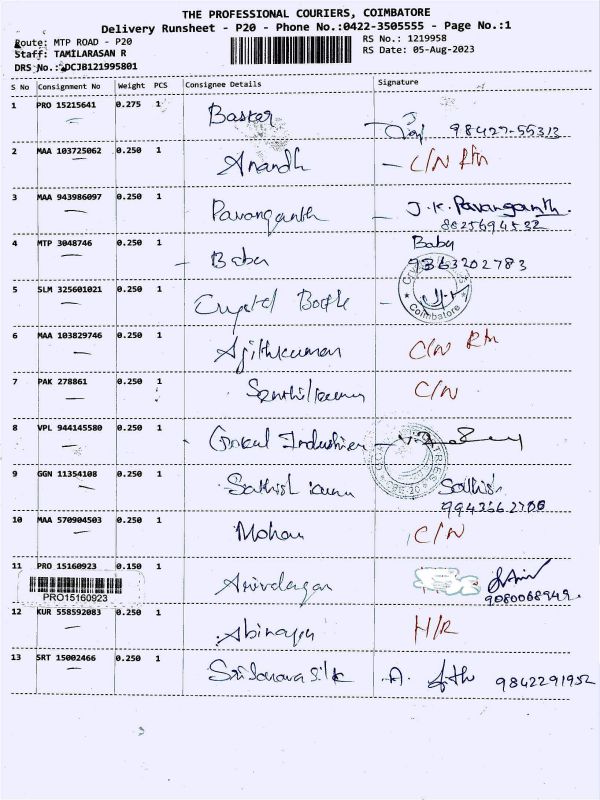 THE PROFESSIONAL COURIERS, COIMBATORE
Delivery Runsheet - P20 - Phone No.:0422-3505555 - Page No.:1
Route: MTP ROAD - P20
RS No.: 1219958
Staff: TAMILARASAN R
RS Date: 05-Aug-2023
DRS No.:DCJB121995801
S No Consignment No Weight PCS Consignee Details Signature
1 PRO 15215641 0.275 1 Basker 98427-55313
2 MAA 103725062 0.250 1 Anandh - C/N Rtn
3 MAA 943986097 0.250 1 Pavanganth - J.K.Pavanganth.
8625694532
4 MTP 3048746 0.250 1 - Baby
9363202783
5 SLM 325601021 0.250 1 Crystal -
Coimbatore
6 MAA 103829746 0.250 1 Ajithkumar C/N Rtn
7 PAK 278861 0.250 1 Senthilkumar C/N
8 VPL 944145580 0.250 1 Gokul Industries
9 GGN 11354108 0.250 1 Sathish kumar Sathish
10 MAA 570904503 0.250 1 Mohan C/N
11 PRO 15160923 0.150 1
9080068949.
PRO15160923
12 KUR 558592083 0.250 1 Abinaya H/R
13 SRT 15002466 0.250 1 Silk A. 9842291952